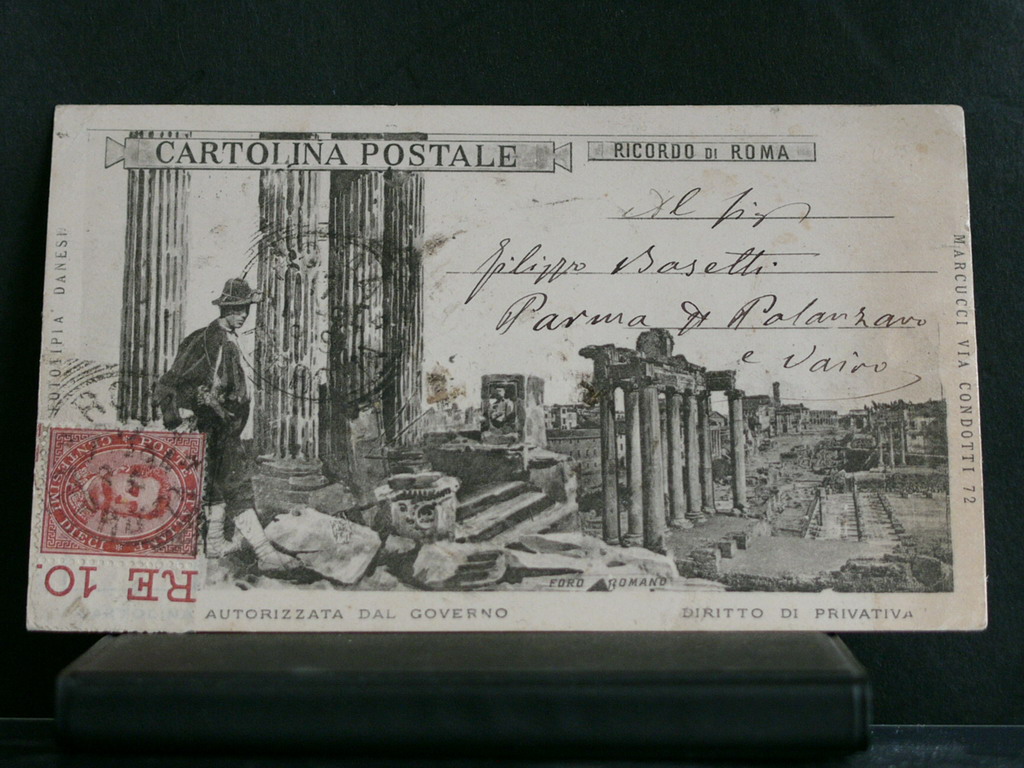 CARTOLINA POSTALE
RICORDO DI ROMA
Al Sig
Filippo Basetti
Parma
Palanzano
e Vairo
FOTOTIPIA DANESI
MARCUCCI VIA CONDOTTI 72
POSTE ITALIANE
CENTESIMI DIECI
RE 10.
FORO ROMANO
AUTORIZZATA DAL GOVERNO
DIRITTO DI PRIVATIVA